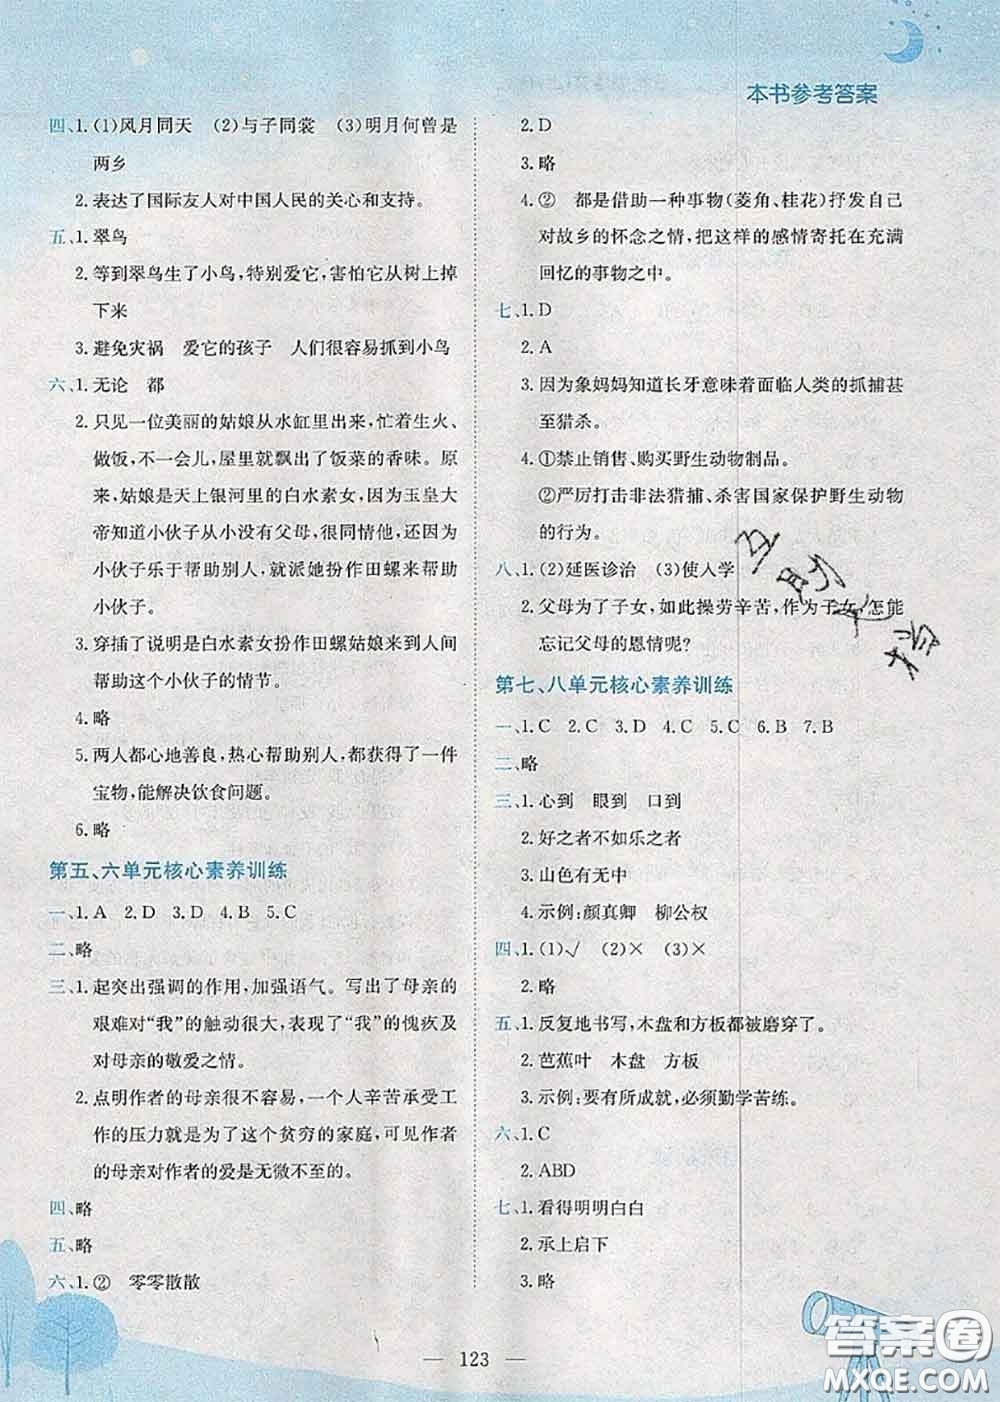 本书参考答案
四、1.(1)风月同天　(2)与子同裳　(3)明月何曾是
两乡
2.表达了国际友人对中国人民的关心和支持。
五、1.翠鸟
2.等到翠鸟生了小鸟,特别爱它,害怕它从树上掉
下来
3.避免灾祸　爱它的孩子　人们很容易抓到小鸟
六、1.无论　都
2.只见一位美丽的姑娘从水缸里出来,忙着生火、
做饭,不一会儿,屋里就飘出了饭菜的香味。原
来,姑娘是天上银河里的白水素女,因为玉皇大
帝知道小伙子从小没有父母,很同情他,还因为
小伙子乐于帮助别人,就派她扮作田螺来帮助
小伙子。
3.穿插了说明是白水素女扮作田螺姑娘来到人间
帮助这个小伙子的情节。
4.略
5.两人都心地善良,热心帮助别人,都获得了一件
宝物,能解决饮食问题。
6.略
第五、六单元核心素养训练
一、1.A　2.D　3.D　4.B　5.C
二、略
三、1.起突出强调的作用,加强语气。写出了母亲的
艰难对“我”的触动很大,表现了“我”的愧疚及
对母亲的敬爱之情。
2.点明作者的母亲很不容易,一个人辛苦承受工
作的压力就是为了这个贫穷的家庭,可见作者
的母亲对作者的爱是无微不至的。
四、略
五、略
六、1.②　零零散散
2.D
3.略
4.②　都是借助一种事物(菱角、桂花)抒发自己
对故乡的怀念之情,把这样的感情寄托在充满
回忆的事物之中。
七、1.D
2.A
3.因为象妈妈知道长牙意味着面临人类的抓捕甚
至猎杀。
4.①禁止销售、购买野生动物制品。
②严厉打击非法猎捕、杀害国家保护野生动物
的行为。
八、1.(2)延医诊治　(3)使入学
2.父母为了子女,如此操劳辛苦,作为子女,怎能
忘记父母的恩情呢?
第七、八单元核心素养训练
一、1.C　2.C　3.D　4.A　5.C　6.B　7.B
二、略
三、1.心到　眼到　口到
2.好之者不如乐之者
3.山色有无中
4.示例:颜真卿　柳公权
四、1.(1)√　(2)×　(3)×
2.略
五、1.反复地书写,木盘和方板都被磨穿了。
2.芭蕉叶　木盘　方板
3.示例:要有所成就,必须勤学苦练。
六、1.C
2.ABD
七、1.看得明明白白
2.承上启下
3.略
123
答案圈
MXQE.COM